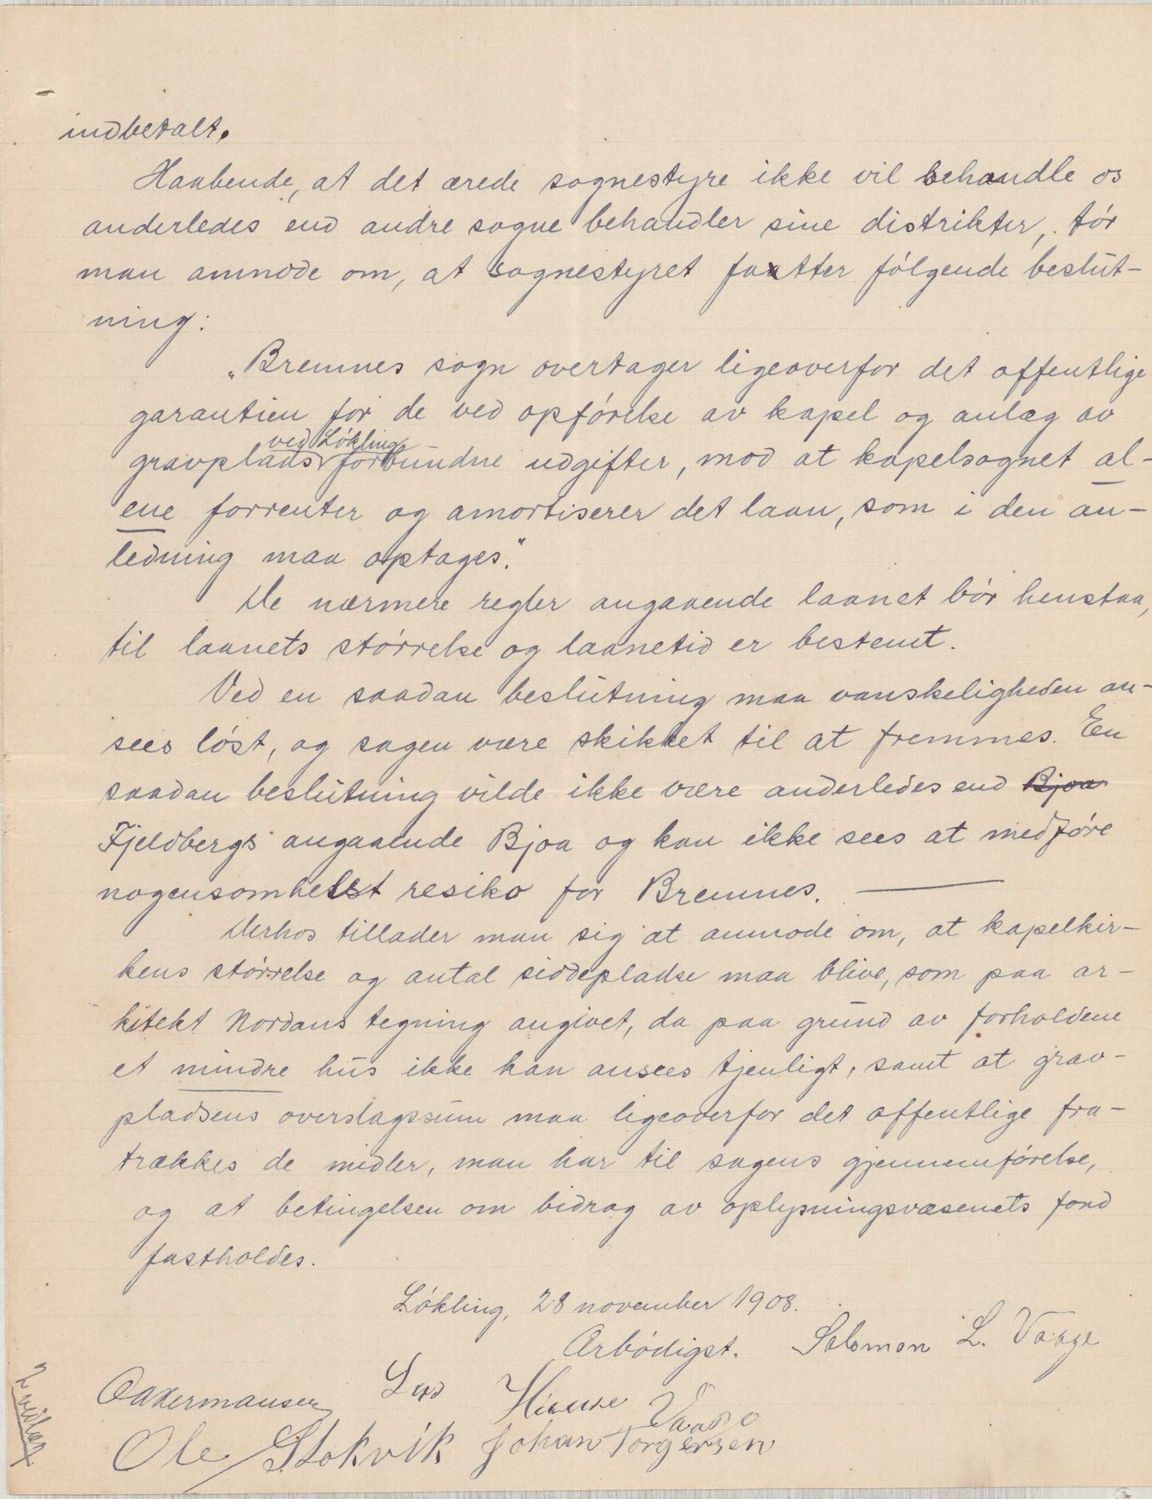 indbetalt.
Haabende, at det ærede sognestyre ikke vil behandle os
anderledes end andre sogne behandler sine distrikter, tør
man anmode om, at sognestyret fatter følgende beslut-
ning:
„Bremnes sogn overtager ligeoverfor det offentlige
garantien for de ved opførelse av kapel og anlæg av
gravplads ved Løkling forbundne udgifter, mod at kapelsognet al-
ene forrenter og amortiserer det laan, som i den an-
ledning maa optages."
De nærmere regler angaaende laanet bør henstaa,
til laanets størrelse og laanetid er bestemt.
Ved en saadan beslutning maa vanskeligheden an-
sees løst, og sagen være skikket til at fremmes. En
saadan beslutning vilde ikke være anderledes end Bjoa
Fjeldbergs angaaende Bjoa og kan ikke sees at medføre
nogensomhelst resiko for Bremnes.
Derhos tillader man sig at anmode om, at kapelkir-
kens størrelse og antal siddepladse maa blive, som paa ar-
kitekt Nordans tegning angivet, da paa grund av forholdene
et mindre hus ikke kan ansees tjenligt, samt at grav-
pladsens overslagssum maa ligeoverfor det offentlige fra-
trækkes de midler, man har til sagens gjennemførelse,
og at betingelsen om bidrag av oplysningsvæsenets fond
fastholdes.
Løkling, 28 november 1908.
Ærbødigst. Salomon L. Vaage
Hinure
Ole Stokvik Johan Torgersen
2 vedlæg